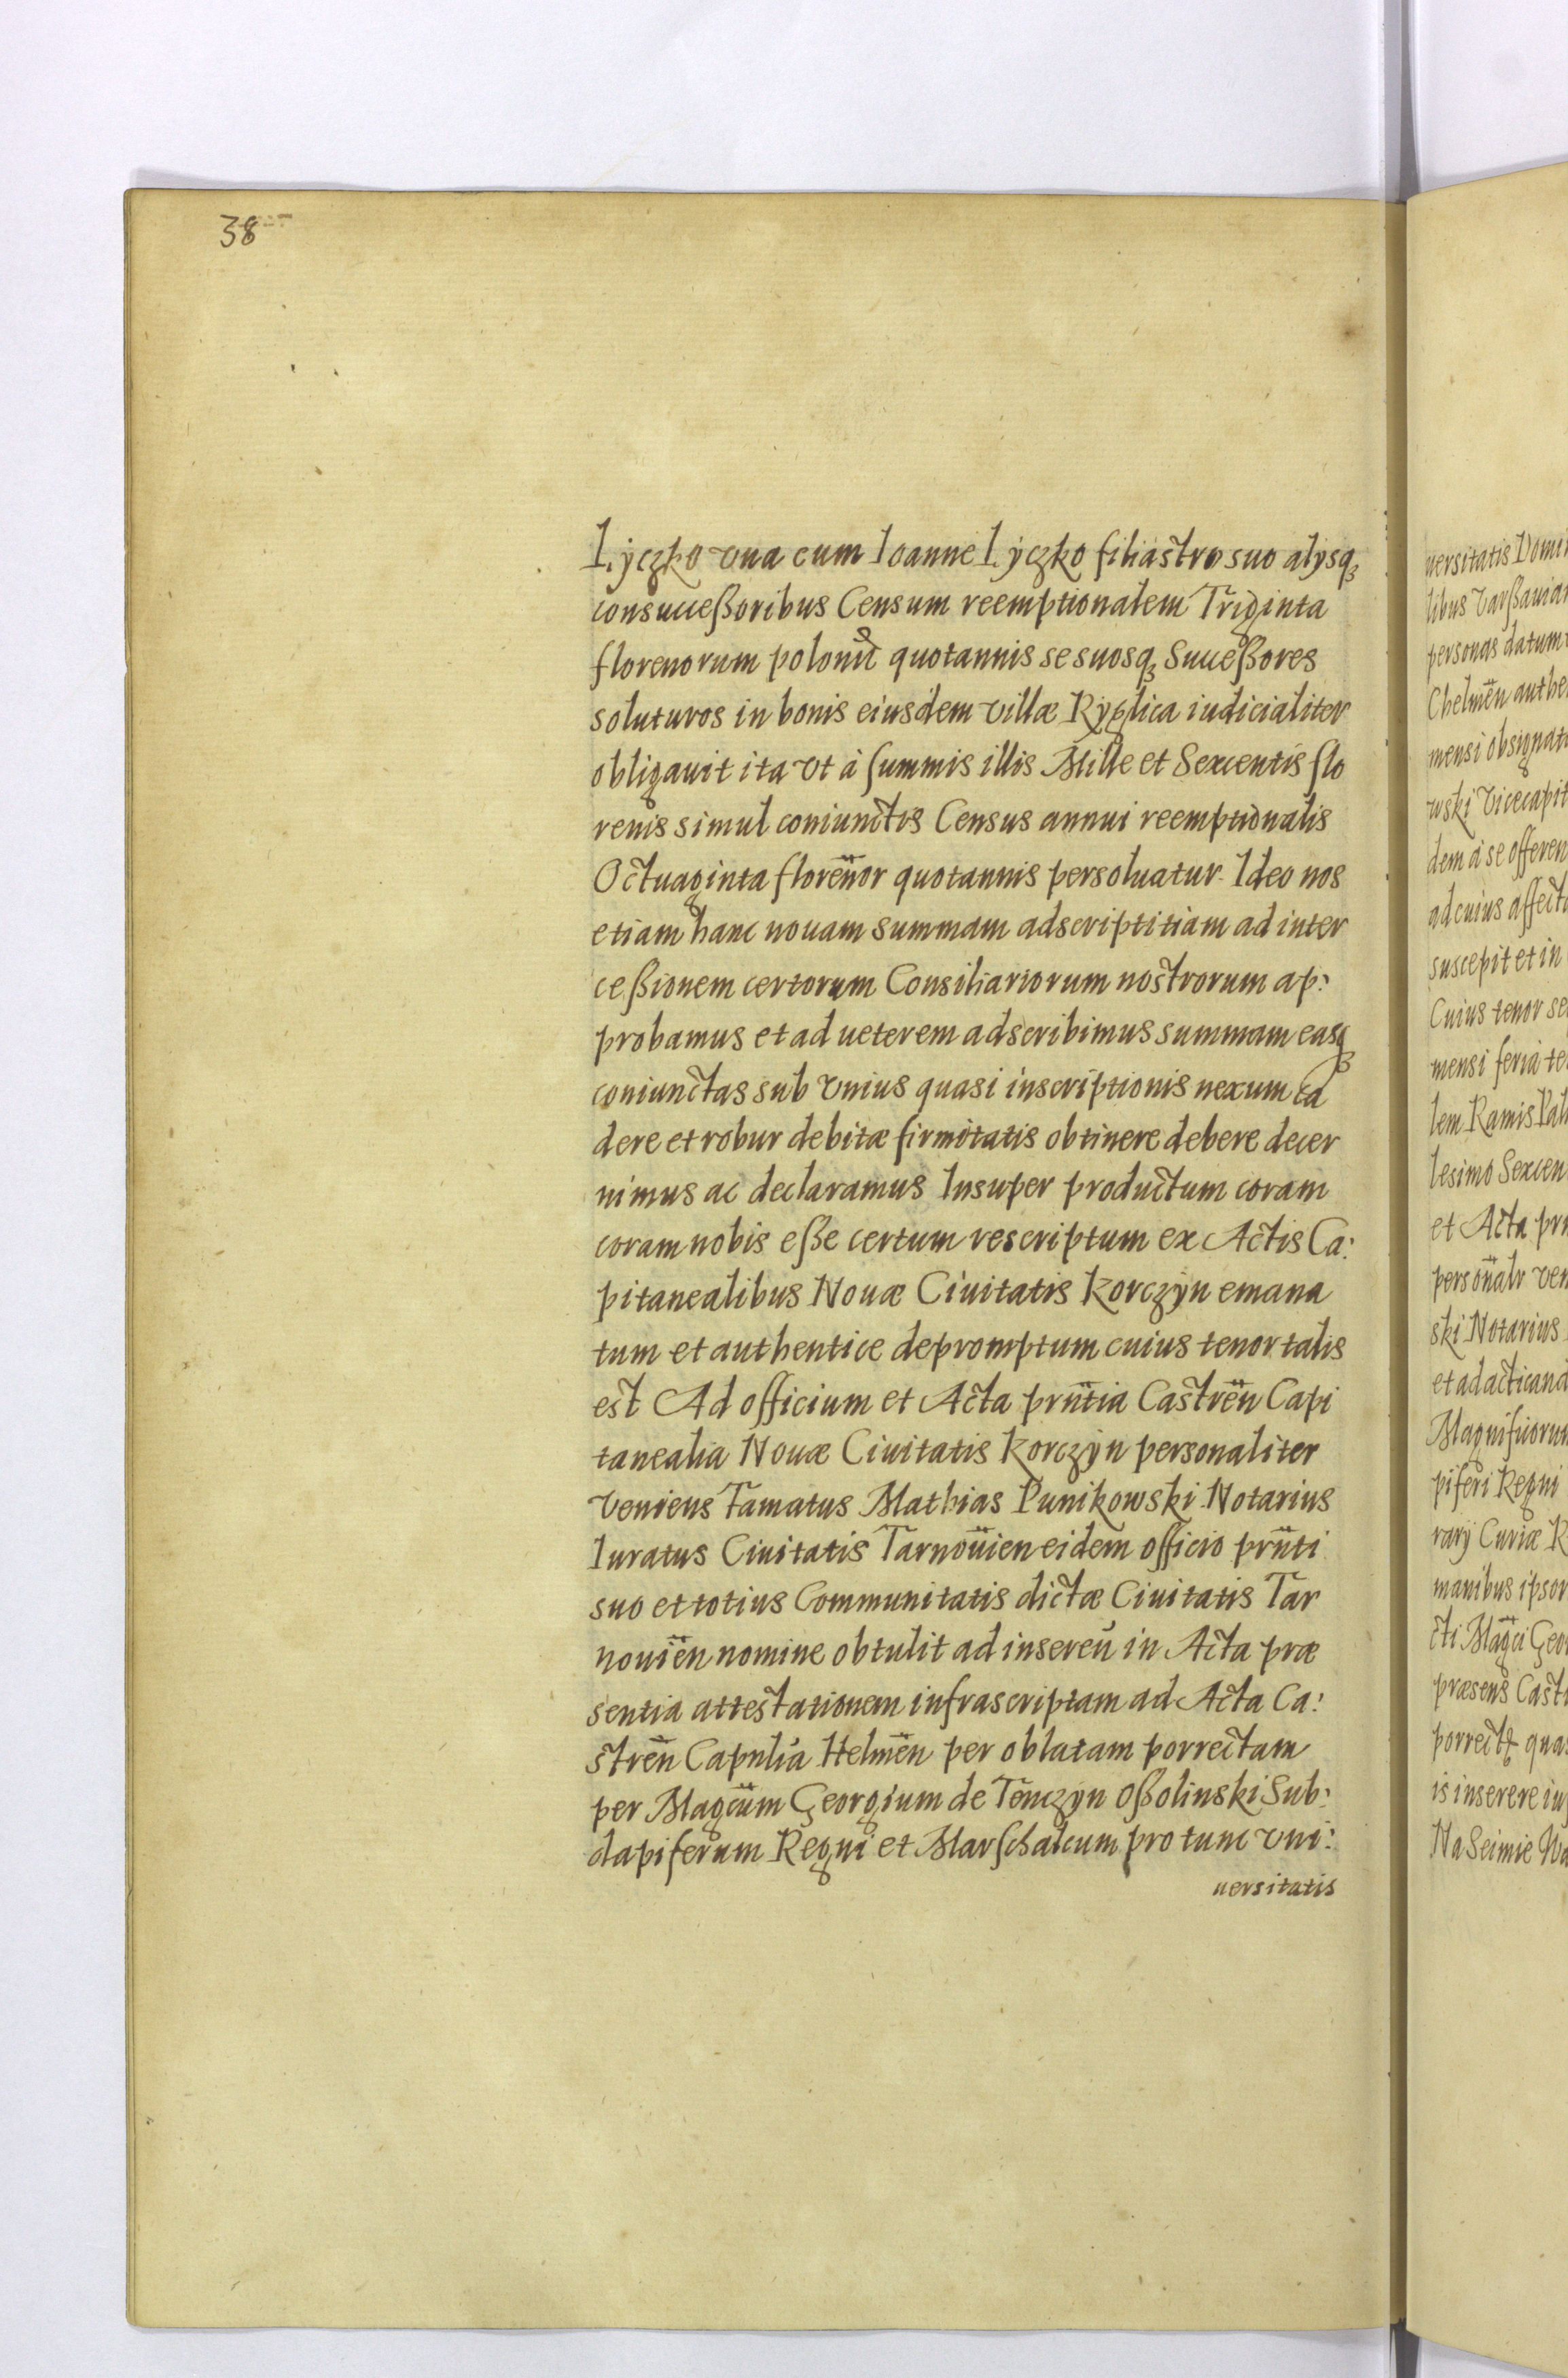 38
Lyczko vna cum Ioanne Lyczko filiastro suo alysq3
consuccessoribus Censum reemptionalem Triginta
florenorum polonic quotannis se suosq3 Successores
soluturos in bonis eiusdem villæ Ryglica iudicialiter
obligauit ita vt à summis illis Mille et Sexcentis flo
renis simul coniunctis Census annui reemptionalis
Octuaginta floren̈or quotannis persoluatur. Ideo nos
etiam hanc nouam summam adscriptitiam ad inter
cessionem certorum Consiliariorum nostrorum ap:
probamus et ad ueterem adscribimus summam easq3
coniunctas sub vnius quasi inscriptionis nexum ca
dere et robur debitæ firmitatis obtinere debere decer
nimus ac declaramus Insuper productum coram
coram nobis esse certum rescriptum ex Actis Ca:
pitanealibus Nouæ Ciuitatis Korczyn emana
tum et authentice depromptum cuius tenor talis
est Ad officium et Acta prn̈tia Castren̈ Capi
tanealia Nouæ Ciuitatis Korczyn personaliter
veniens Famatus Mathias Punikowski Notarius
Iuratus Ciuitatis Tarnoüien eidem officio prn̈ti
suo et totius Communitatis dictæ Ciuitatis Tar
nouien̈ nomine obtulit ad insereń in Acta præ
sentia attestationem infrascriptam ad Acta Ca:
stren̈ Capnlia Helmen̈ per oblatam porrectam
per Magcüm Georgium de Tenczyn Ossolinski Sub:
dapiferum Regni et Marschalcum pro tunc vni:
uersitatis
uersitatis
suscepit et in
Cuius tenor
lesimo
et Acta
ski Notarius
piferi Regni
rary Curiæ
manibus
præsens
is inserere
Na Seimie